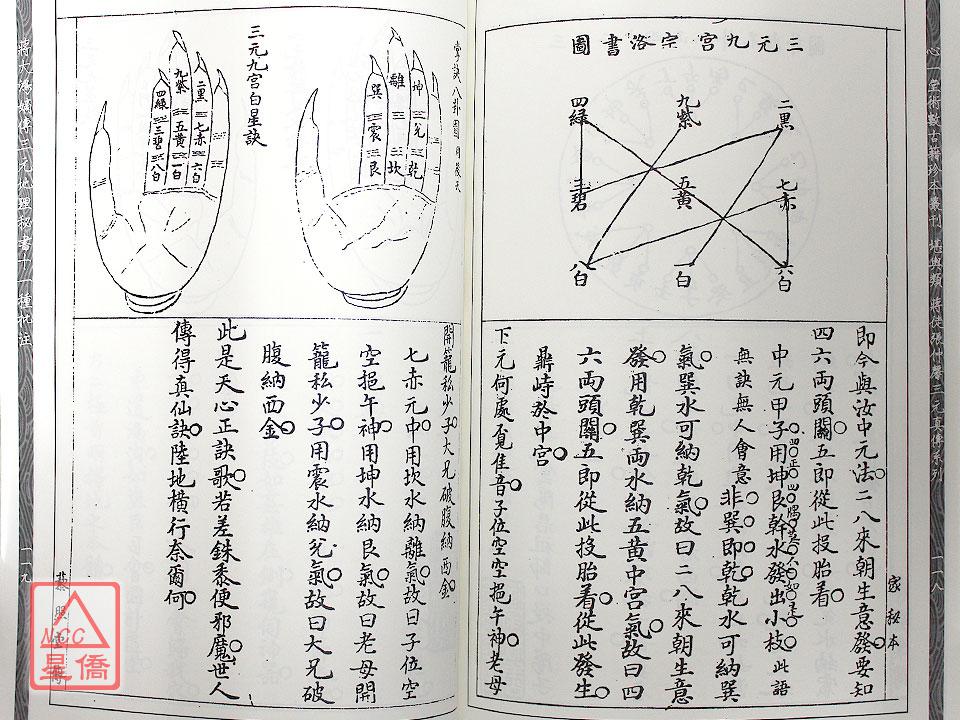 三元九宮宗洛書圖
二黑
九紫
四綠
七赤
五黃
三碧
六白
一白
八白
即今與汝中元法二八來朝生意發要知
四六両頭關五即從此投胎看
中元甲子用坤艮幹水發出小枝此語
無訣無人會意非巽即乾乾水可納巽
氣巽水可納乾氣故曰二八來朝生意
發用乾巽両水納五黃中宮氣故曰四
六両頭關五即從此投胎看從此發生
鼎峙於中宮
下元何處覔佳音子位空空挹午神老母
家秘本
一一八
心一堂術數古籍珍本叢刊 堪輿類 蔣徒張仲馨三元真傳系列
掌訣八卦圖用後天
坤
離
巽
兌
震
乾
坎
艮
三元九宮白星訣
二黑
九紫
四綠
七赤
五黃
三碧
六白
一白
八白
開籠私少子大兄破腹納西金
七赤元中用坎水納離氣故曰子位空
空挹午神用坤水納艮氣故曰老母開
籠私少子用震水納兌氣故曰大兄破
腹納西金
此是天心正訣歌若差銖黍便邪魔世人
傳得真仙訣陸地橫行奈爾何
一一九
NCC
星僑